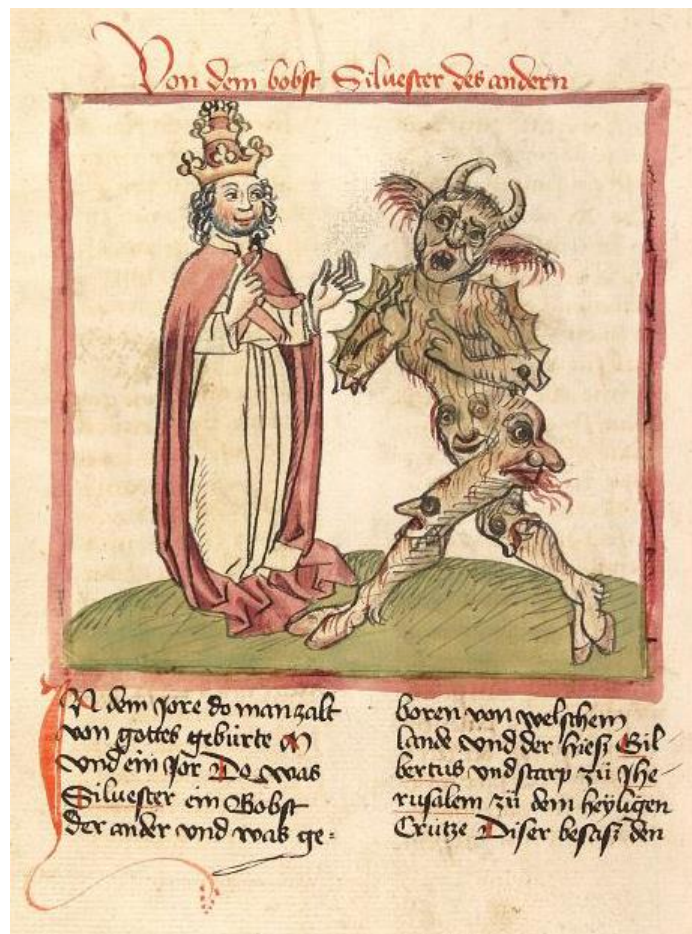 Von dem bobst Siluester des andern
IN dem Jore do man zalt
von gottes gebürte M
vnd ein Jor Do was
Siluester ein Bobst
der ander vnd was ge=
boren von welschem
lande vnd der hiesz Gil
bertus vnd starp zü Jhe
rusalem zü dem heÿligen
Crütze Diser besasz den